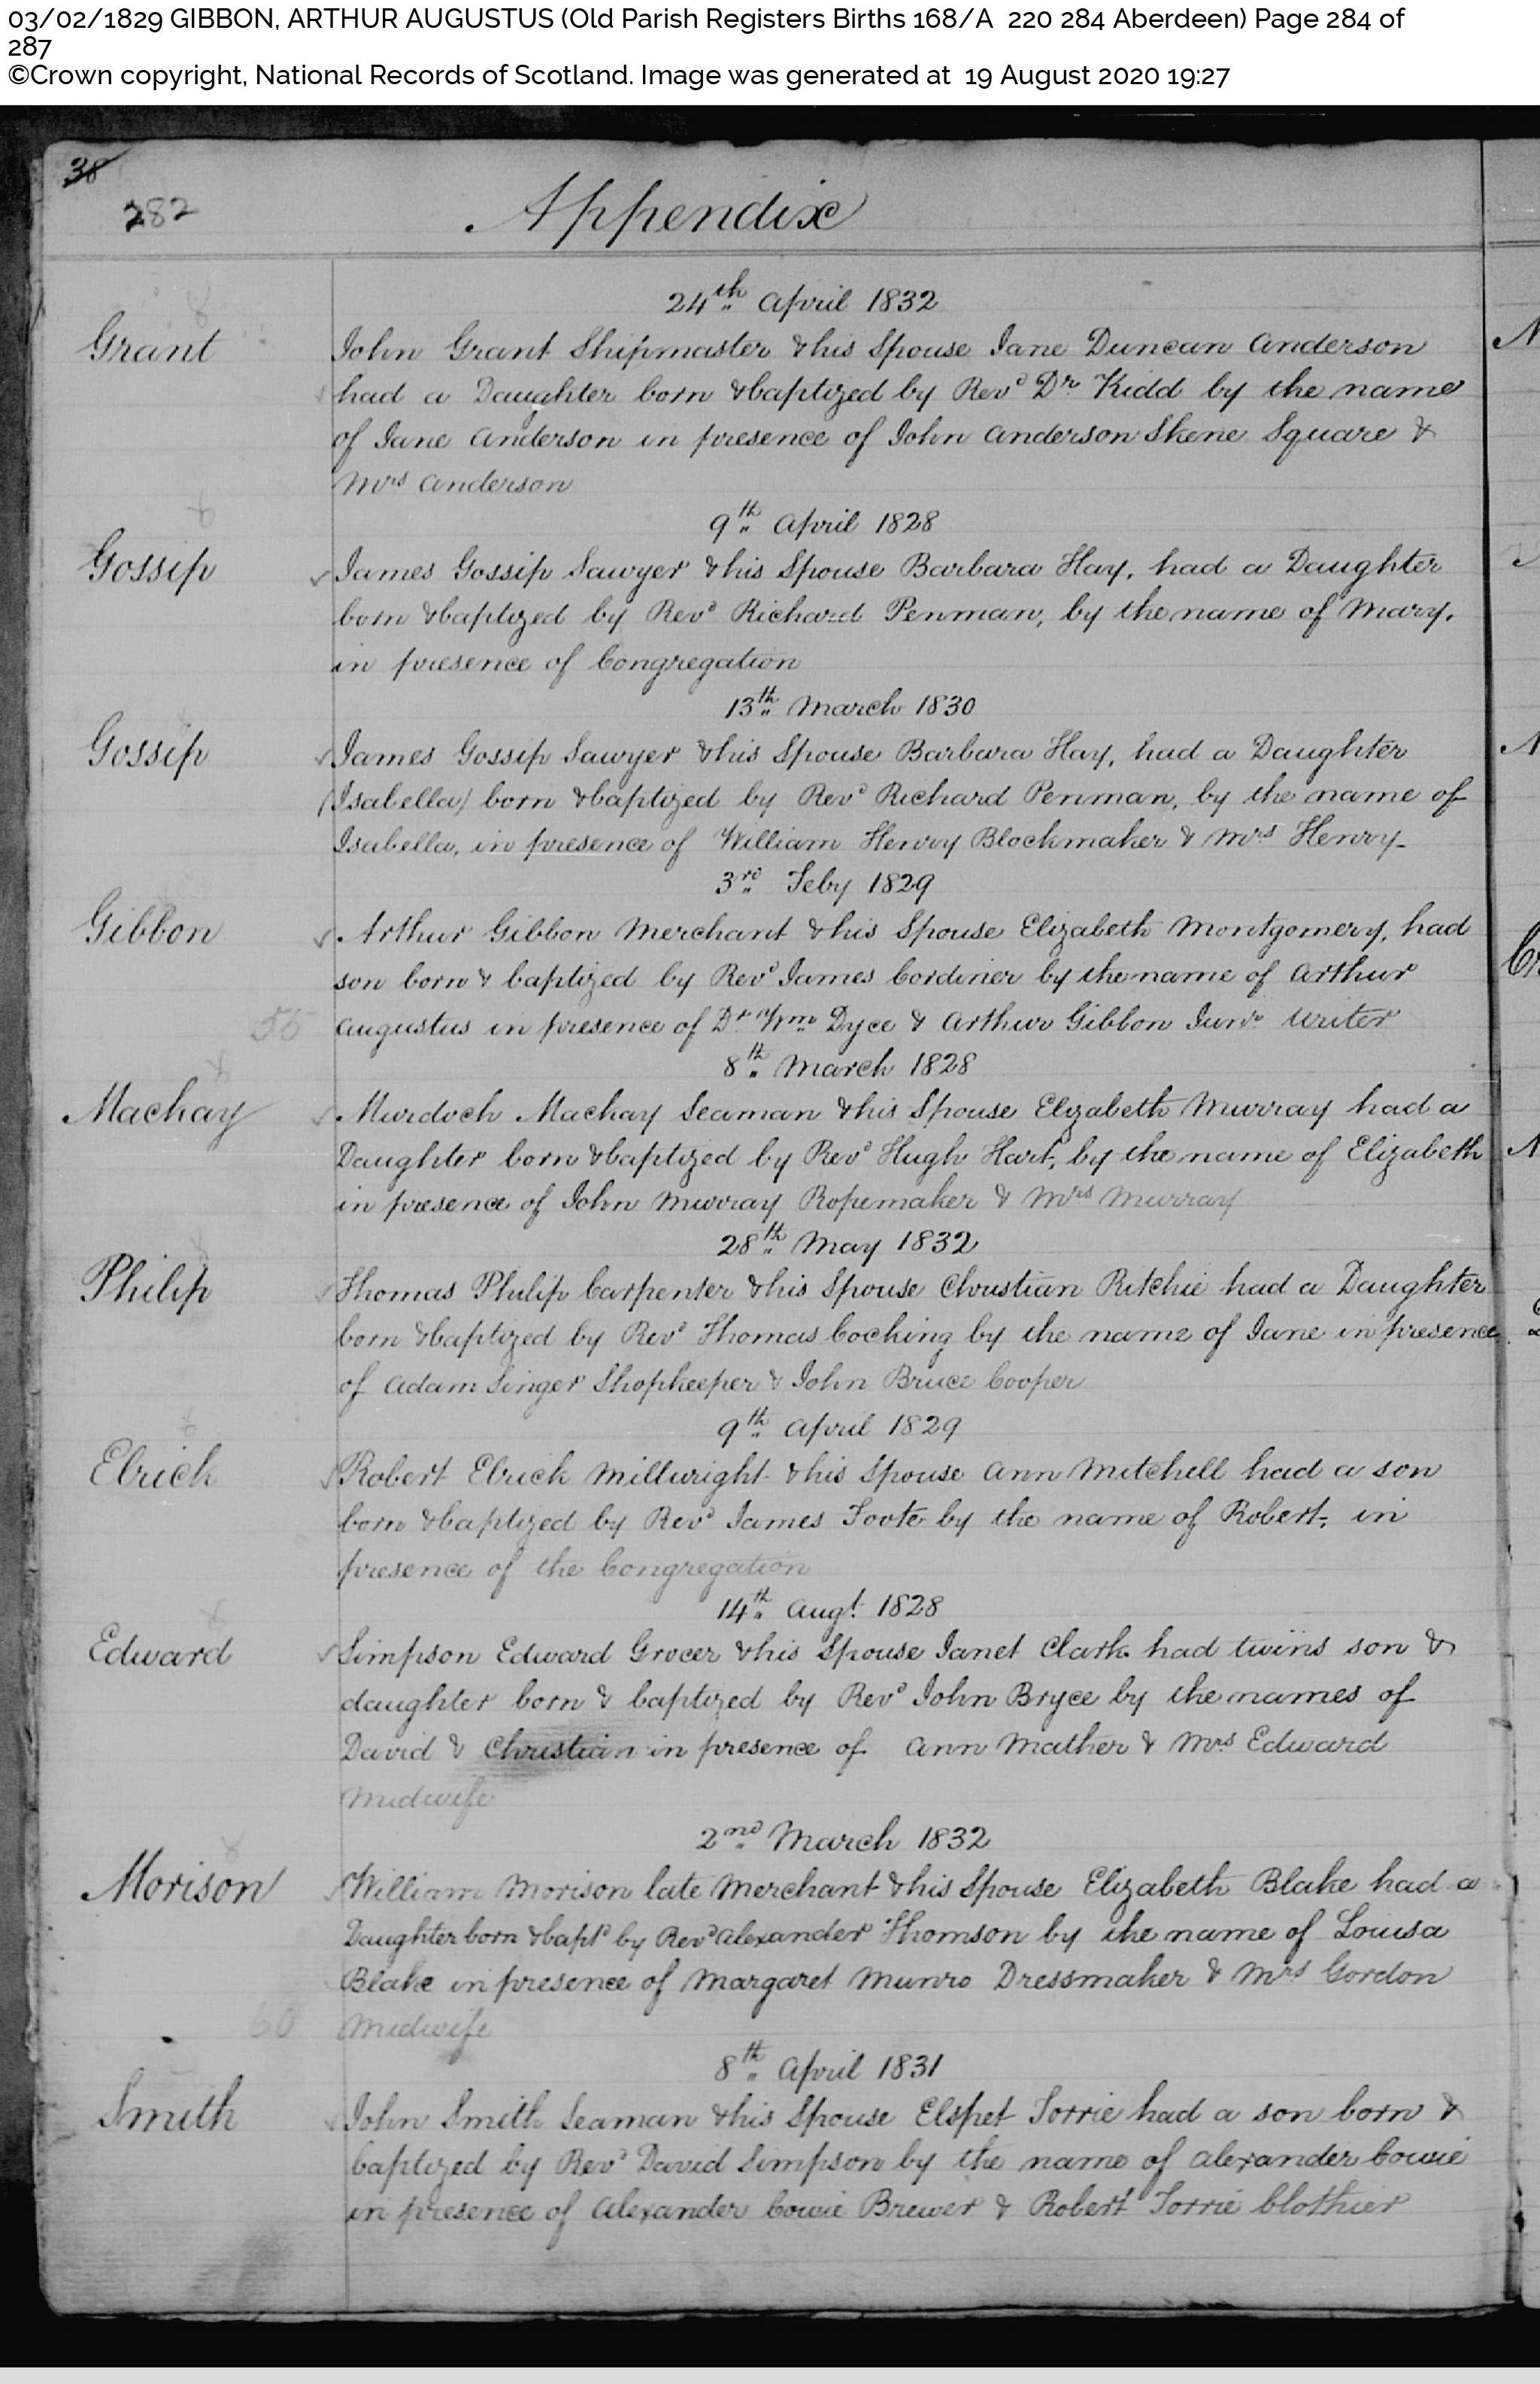 03/02/1829 GIBBON, ARTHUR AUGUSTUS (Old Parish Registers Births 168/A 220 284 Aberdeen) Page 284 of
287
©Crown copyright, National Records of Scotland. Image was generated at 19 August 2020 19:27
38
282
Appendix
24th April 1832
Grant
John Grant Shipmaster & his Spouse Jane Duncan Anderson
had a Daughter born & baptized by Revd Dr Kidd by the name
of Jane Anderson in presence of John Anderson Skene Square &
Mrs Anderson
9th April 1828
Gossip
James Gossip Sawyer & his Spouse Barbara Hay, had a Daughter
born & baptized by Revd Richard Penman, by the name of Mary,
in presence of Congregation
13th March 1830
Gossip
James Gossip Sawyer & his Spouse Barbara Hay, had a Daughter
(Isabella) born & baptized by Revd Richard Penman, by the name of
Isabella, in presence of William Henry Blockmaker & Mrs Henry
3rd Feby 1829
Gibbon
Arthur Gibbon Merchant & his Spouse Elizabeth Montgomery, had
son born & baptized by Revd James Cordiner by the name of Arthur
55 Augustus in presence of Dr Wm Dyce & Arthur Gibbon Junr writer
8th March 1828
Mackay
Murdoch Mackay Seaman & his Spouse Elizabeth Murray had a
Daughter born & baptized by Revd Hugh Hart, by the name of Elizabeth
in presence of John Murray Ropemaker & Mrs Murray
28th May 1832
Philip
Thomas Philip Carpenter & his Spouse Christian Ritchie had a Daughter
born & baptized by Revd Thomas Cocking by the name of Jane in presence
of Adam Singer Shopkeeper & John Bruce Cooper
9th April 1829
Elrick
Robert Elrick Millwright & his Spouse Ann Mitchell had a son
born & baptized by Revd James Foote by the name of Robert, in
presence of the Congregation
14th Augt 1828
Edward
Simpson Edward Grocer & his Spouse Janet Clark had twins son &
daughter born & baptized by Revd John Bryce by the names of
David & Christian in presence of Ann Mather & Mrs Edward
Midwife
2nd March 1832
Morison
William Morison late Merchant & his Spouse Elizabeth Blake had a
Daughter born & bapd by Revd Alexander Thomson by the name of Louisa
Blake in presence of Margaret Munro Dressmaker & Mrs Gordon
60 Midwife
8th April 1831
Smith
John Smith Seaman & his Spouse Elspet Torrie had a son born &
baptized by Revd David Simpson by the name of Alexander Cowie
in presence of Alexander Cowie Brewer & Robert Torrie Clothier